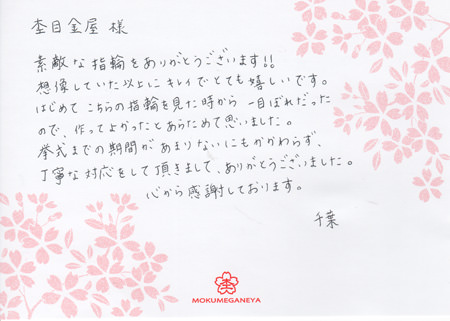 杢目金屋 様
素敵な指輪をありがとうございます!!
想像していた以上にキレイでとても嬉しいです。
はじめてこちらの指輪を見た時から一目ぼれだった
ので、作ってよかったとあらためて思いました。
挙式までの期間があまりないにもかかわらず、
丁寧な対応をして頂きまして、ありがとうございました。
心から感謝しております。
千葉
杢
MOKUMEGANEYA